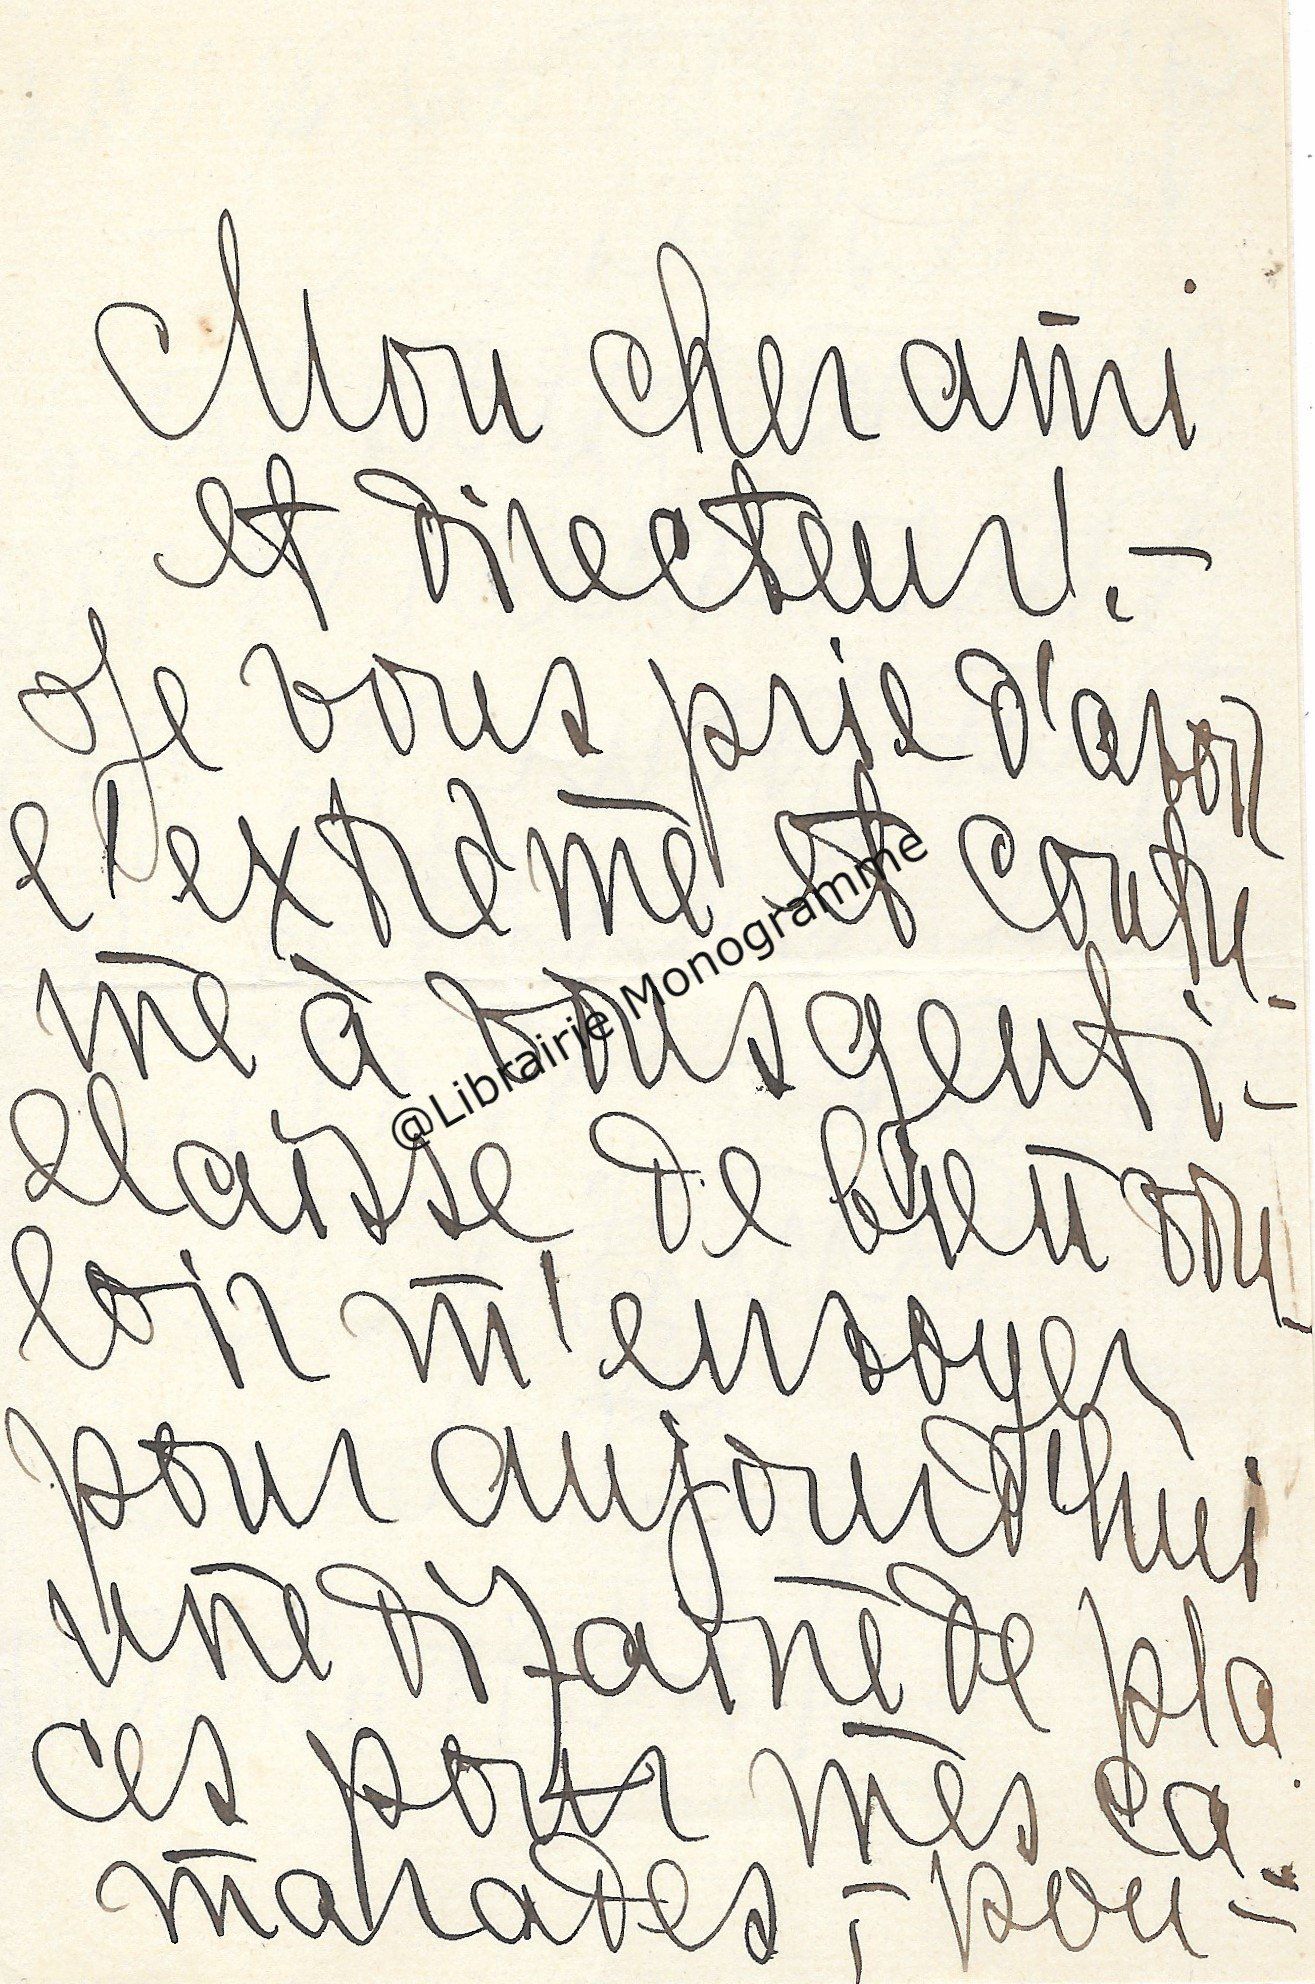 Mon cher ami
et directeur !. —
Je vous prie d'avoir
l'extrême et coutu-
me à vous genti-
llaisse de bien vou-
loir m'envoyer
pour aujourd'hui
une dizaine de pla
ces pour mes ca-
marades ; — pou-
@Librairie Monogramme